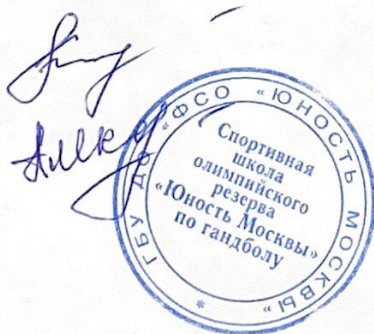 ГБУ ДО «ФСО «ЮНОСТЬ МОСКВЫ» *
Спортивная
школа
олимпийского
резерва
«Юность Москвы»
по гандболу